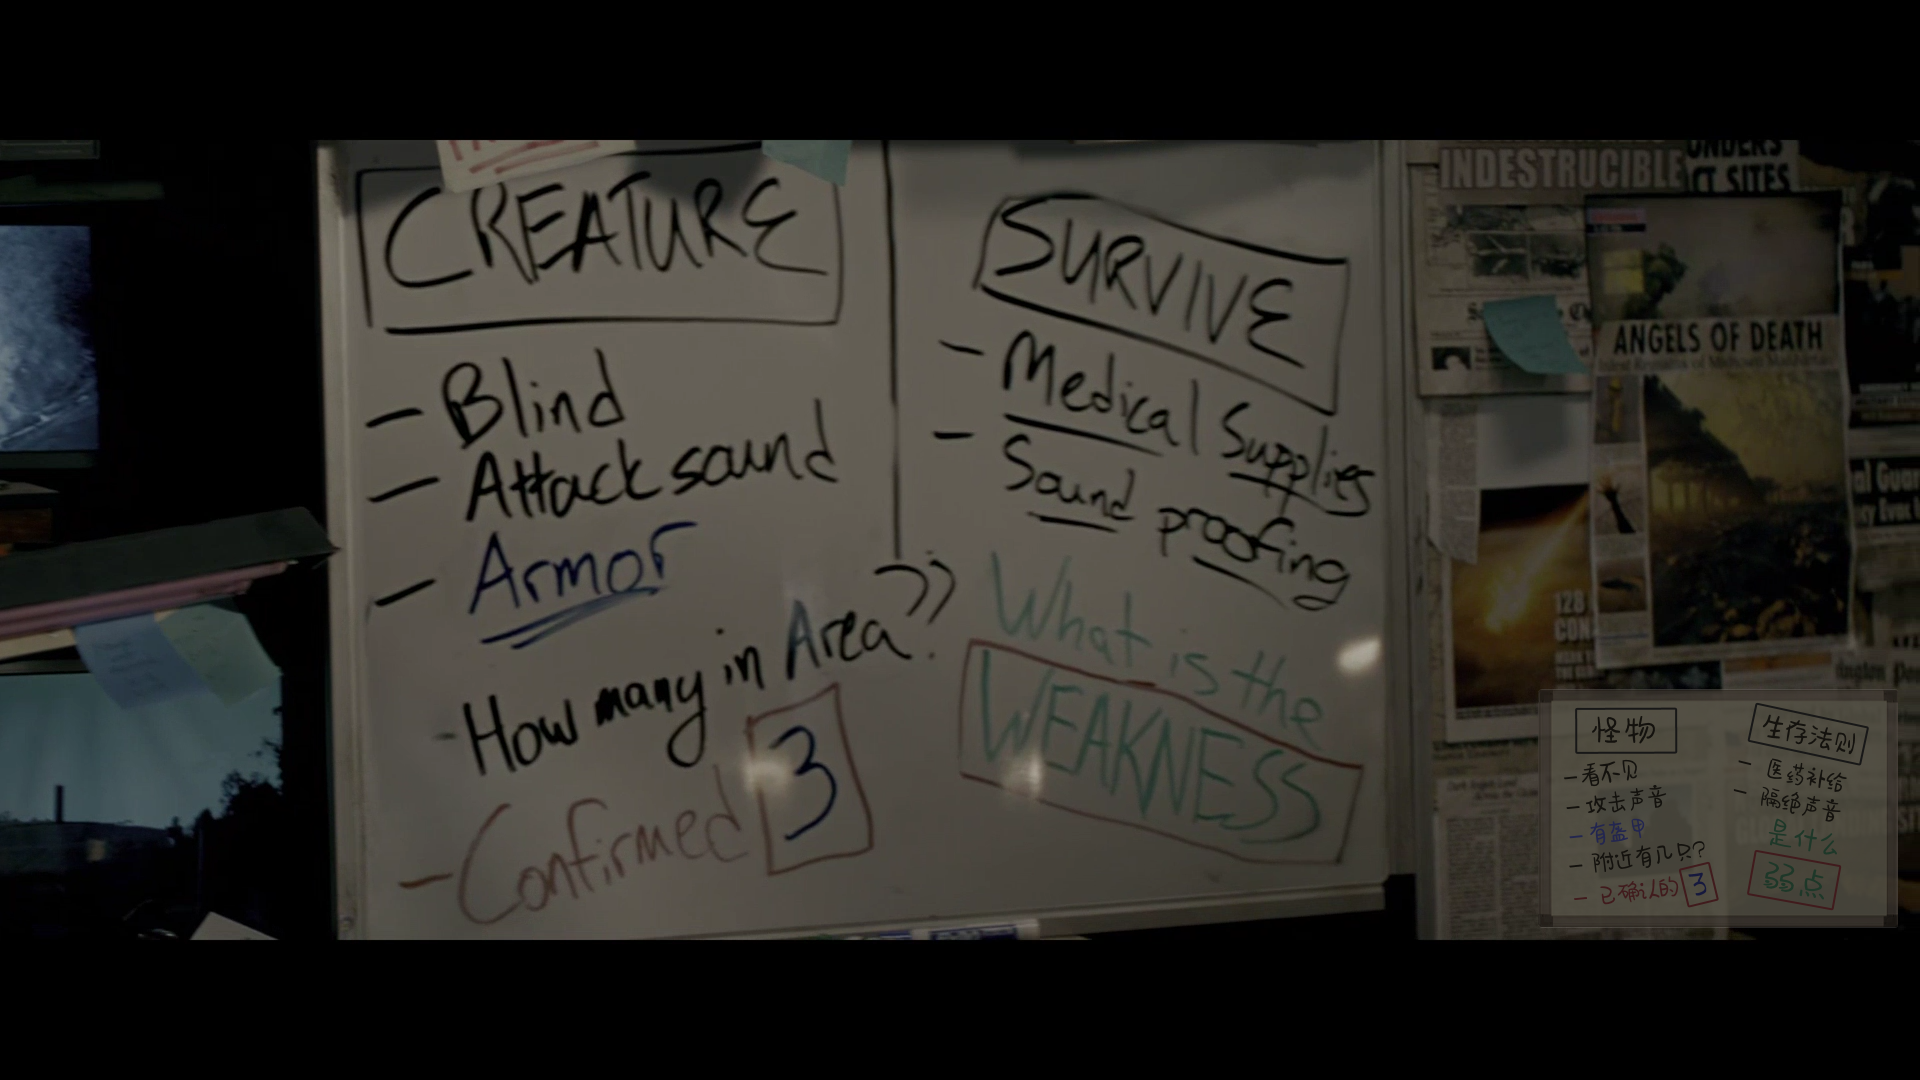 CREATURE
- Blind
- Attack sound
- Armor
- How many in Area??
- Confirmed 3
SURVIVE
- Medical Supplies
- Sound proofing
What is the
WEAKNESS
INDESTRUCIBLE
CT SITES
ANGELS OF DEATH
128
CON
怪物
-看不见
-攻击声音
-有盔甲
-附近有几只?
-已确认的 3
生存法则
- 医药补给
- 隔绝声音
是什么
弱点